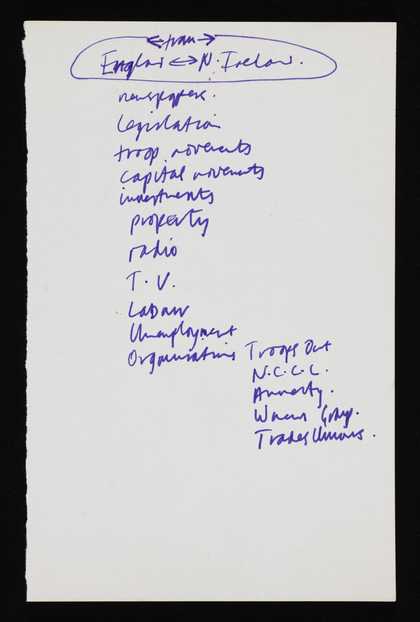 ← →
England ↔ N. Ireland.
newspapers.
legislation
troop movements
capital movements
investments
property
radio
T.V.
Labour
Unemployment
Organisations Troops Out
N.C.C.L.
Amnesty.
Women Group.
Trades Unions.